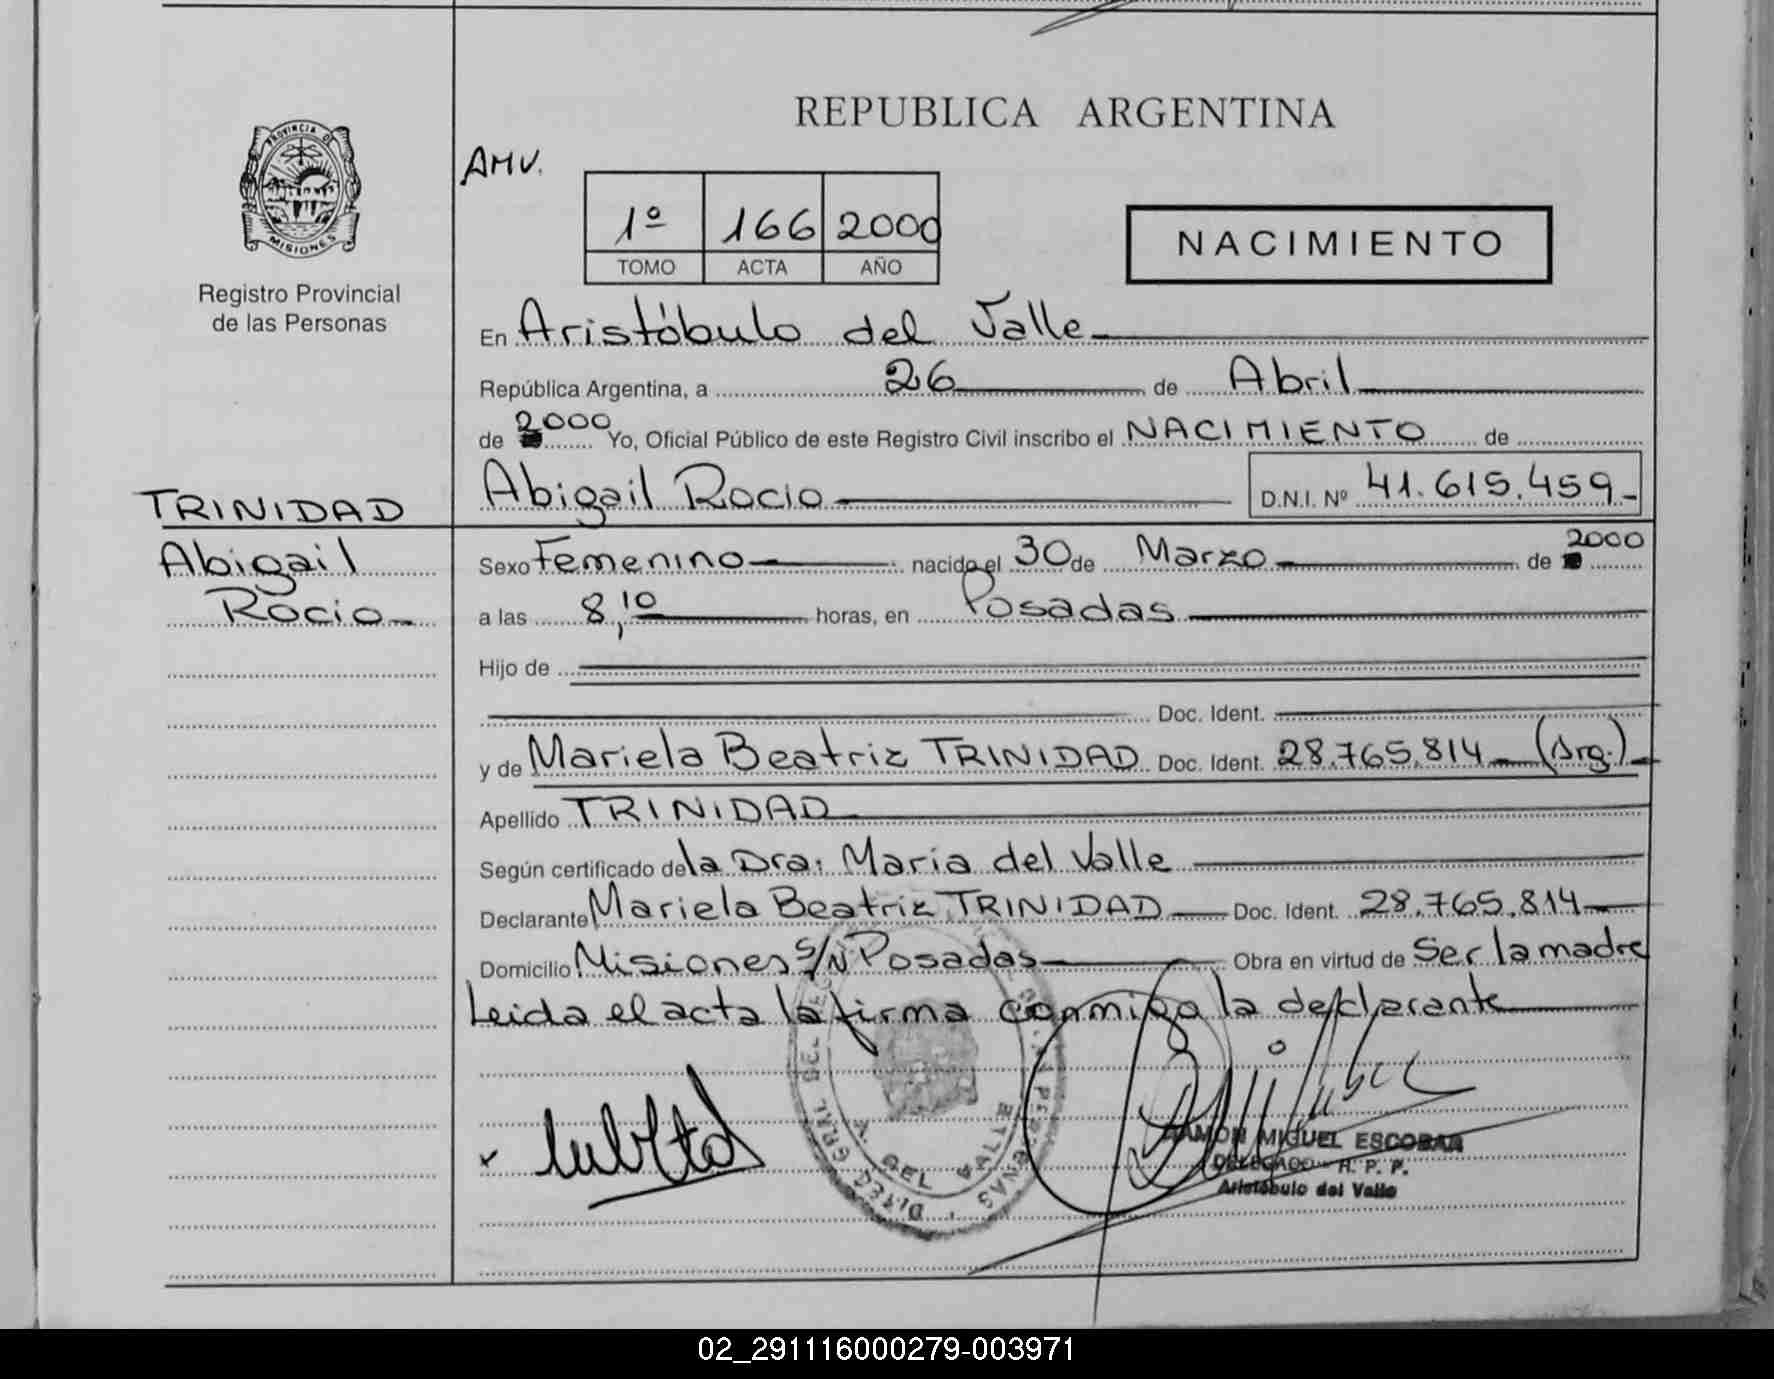 REPUBLICA ARGENTINA
PROVINCIA DE
MISIONES
Registro Provincial
de las Personas
AMV.
1º 166 2000
TOMO ACTA AÑO
NACIMIENTO
En Aristóbulo del Valle
República Argentina, a 26 de Abril
de 2000 Yo, Oficial Público de este Registro Civil inscribo el NACIMIENTO de
Abigail Rocio D.N.I. Nº 41.615.459
TRINIDAD
Abigail
Rocio
Sexo Femenino nacido el 30 de Marzo de 2000
a las 8,10 horas, en Posadas
Hijo de
Doc. Ident.
y de Mariela Beatriz TRINIDAD Doc. Ident. 28.765.814 (Arg.)
Apellido TRINIDAD
Según certificado de la Dra: Maria del Valle
Declarante Mariela Beatriz TRINIDAD Doc. Ident. 28.765.814
Domicilio Misiones S/N Posadas Obra en virtud de Ser la madre
Leida el acta la firma conmigo la declarante
DEL VALLE
RAMON MIGUEL ESCOBAR
DELEGADO R. P. P.
Aristóbulo del Valle
02_291116000279-003971